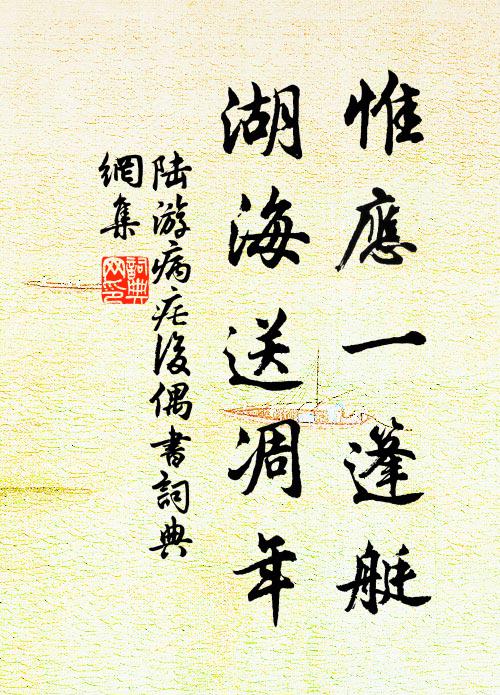 惟應一篷艇
湖海送凋年
陸游病疟後偶書詞典
網集
詞典
網印